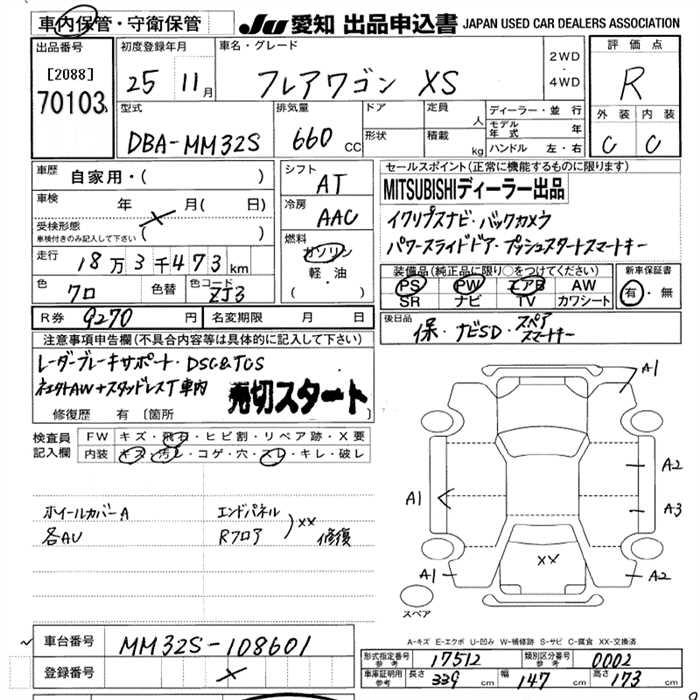 車内保管・守衛保管
JU 愛知 出品申込書 JAPAN USED CAR DEALERS ASSOCIATION
出品番号
[2088]
70103
初度登録年月
25 11月
車名・グレード
フレアワゴン XS
2WD
・
4WD
評価点
R
外装 内装
C C
型式
DBA-MM32S
排気量
660 CC
ドア
形状
定員 人
積載 kg
ディーラー・並行
モデル年式 年
ハンドル 左・右
車歴
自家用・( )
車検 年 月( 日)
受検形態
車検付きのみ記入して下さい ( )
走行 18万3千473km
色 クロ 色替 色コード ZJ3
シフト
AT
冷房
AAC
燃料
ガソリン
軽・油
( )
セールスポイント(正常に機能するものに限ります)
MITSUBISHIディーラー出品
イクリプスナビ・バックカメラ
パワースライドドア・プッシュスタートスマートキー
装備品(純正品に限り○をつけてください)
PS PW エアB AW
SR ナビ TV カワシート
新車保証書
有・無
R券 9270円 名変期限 月 日
後日品
保・ナビSD・スペア
スマートキー
注意事項申告欄(不具合内容等は具体的に記入して下さい)
レーダーブレーキサポート・DSC&TCS
社外AW+スタッドレスT車内
売切スタート
修復歴 有(箇所 )
検査員
記入欄
FW キズ・飛石・ヒビ割・リペア跡・X要
内装 キズ・汚レ・コゲ・穴・スレ・キレ・破レ
ホイールカバーA
各AU
エンドパネル
Rフロア
)××
修復
A1
A2
A3
A1
××
A1
A2
スペア
A-キズ E-エクボ U-凹み W-補修跡 S-サビ C-腐食 XX-交換済
車台番号 MM32S-108601
登録番号
形式指定番号
参考
17512
類別区分番号
参考
0002
車庫証明用
参考
長さ 339 cm 幅 147 cm 高さ 173 cm